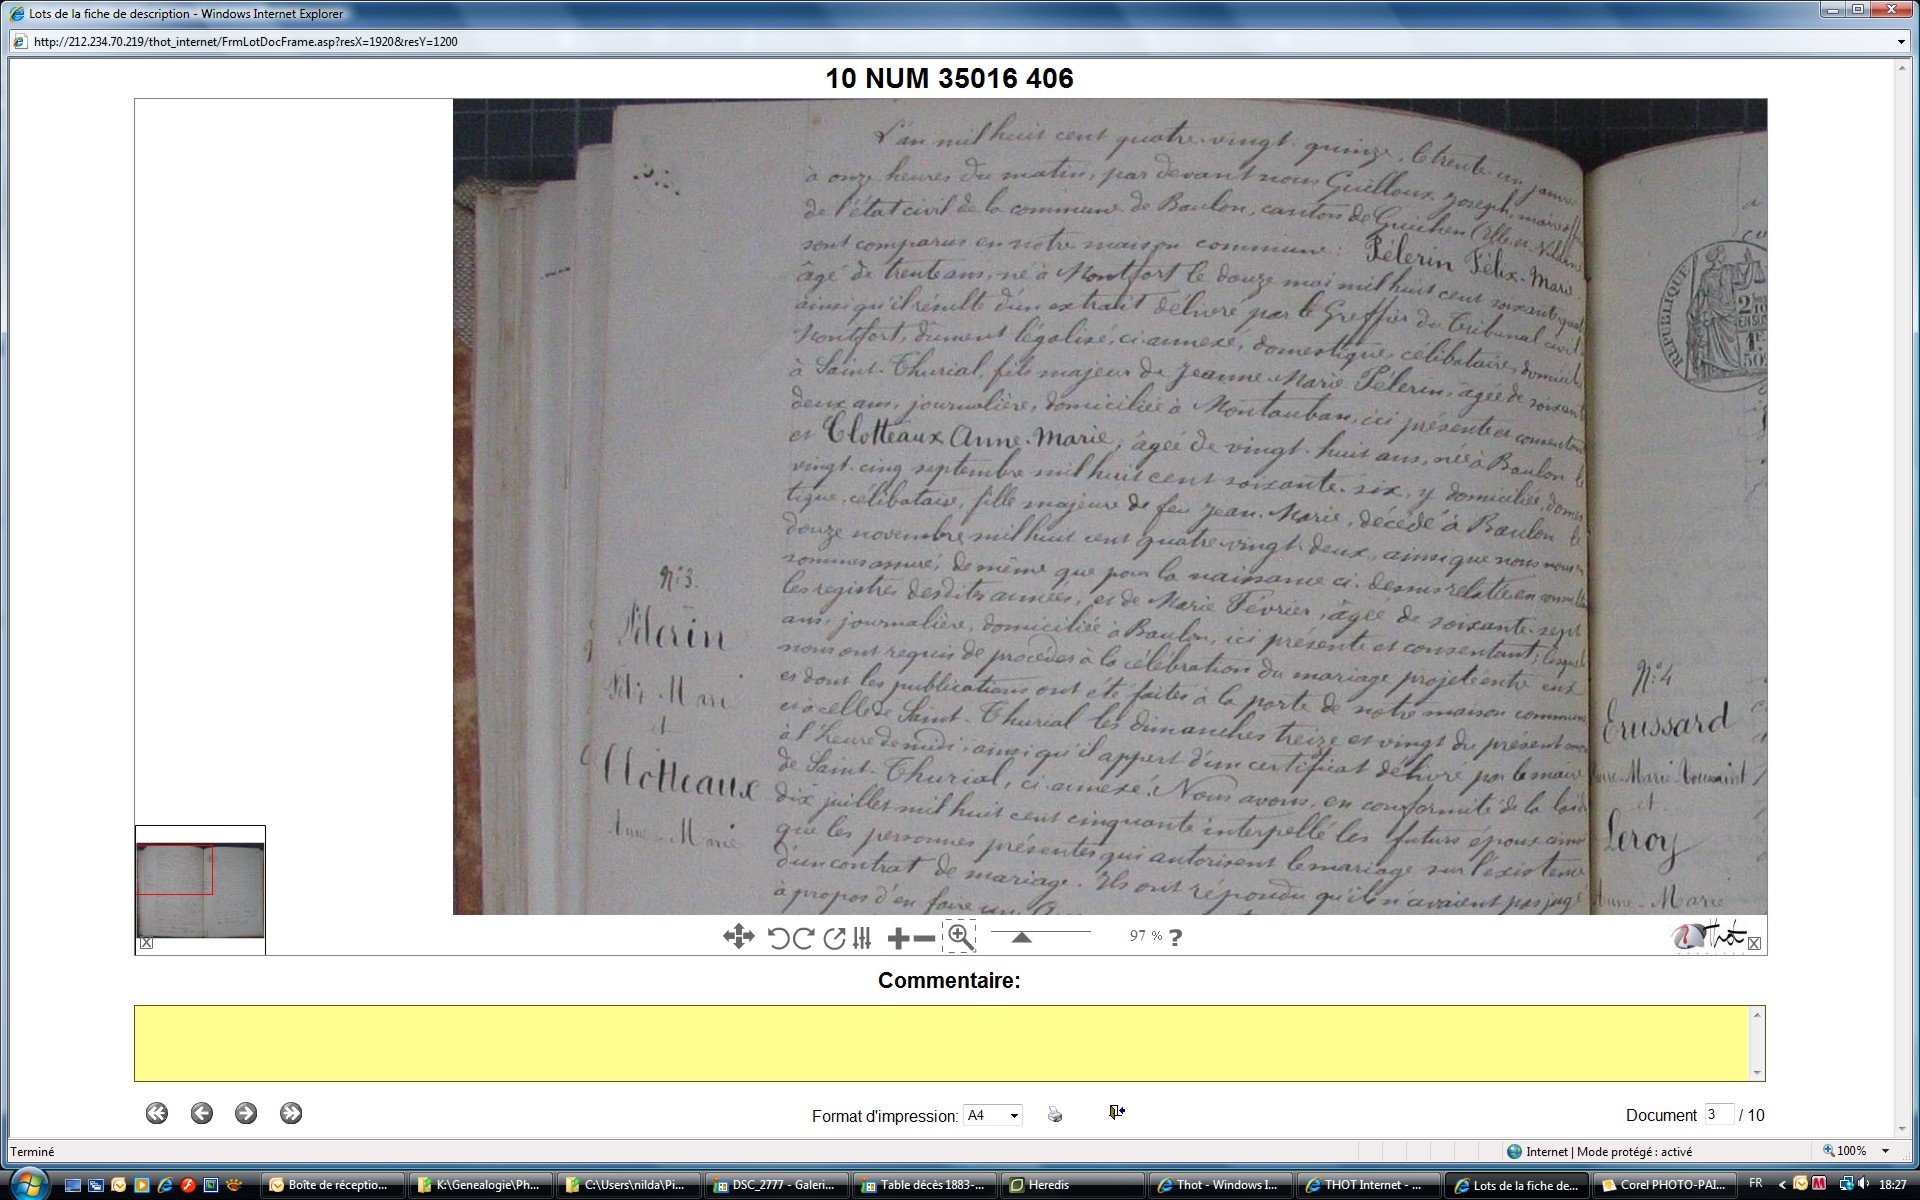 Lots de la fiche de description - Windows Internet Explorer
http://212.234.70.219/thot_internet/FrmLotDocFrame.asp?resX=1920&resY=1200
10 NUM 35016 406
L'an mil huit cent quatre-vingt-quinze, le trente-un janv
à onze heures du matin, par devant nous Guilloux Joseph, maire off
de l'état civil de la commune de Baulon, canton de Guichen (Ille-et-Vilaine
sont comparus en notre maison commune: Pélerin Félix-Marie
âgé de trente ans, né à Montfort le douze mai mil huit cent soixante-quat
ainsi qu'il résulte d'un extrait délivré par le Greffier du Tribunal civil
Montfort, dument légalisé, ci-annexé, domestique, célibataire, domicil
à Saint-Thurial, fils majeur de Jeanne-Marie Pélerin, âgée de soixant
deux ans, journalière, domiciliée à Montauban, ici présente et consentan
et Clotteaux Anne-Marie, âgée de vingt-huit ans, née à Baulon le
vingt-cinq septembre mil huit cent soixante-six, y domiciliée, domes
tique, célibataire, fille majeure de feu Jean-Marie, décédé à Baulon le
douze novembre mil huit cent quatre-vingt-deux, ainsi que nous nous
sommes assuré, de même que pour la naissance ci-dessus relatée en consul
les registres desdites années, et de Marie Février, âgée de soixante-sept
ans, journalière, domiciliée à Baulon, ici présente et consentant; lesquel
nous ont requis de procéder à la célébration du mariage projeté entre eux
et dont les publications ont été faites à la porte de notre maison commune
et à celle de Saint-Thurial les dimanches treize et vingt du présent mois
à l'heure de midi, ainsi qu'il appert d'un certificat délivré par le maire
de Saint-Thurial, ci-annexé. Nous avons, en conformité de la loi du
dix juillet mil huit cent cinquante interpellé les futurs époux ainsi
que les personnes présentes qui autorisent le mariage sur l'existence
d'un contrat de mariage. Ils ont répondu qu'ils n'avaient pas jugé
à propos d'en faire un.
N°3.
Pélerin
Félix Marie
et
Clotteaux
Anne-Marie
REPUBLIQUE
N°4
Erussard
Marie-Toussaint
et
Leroy
Anne-Marie
97 %
?
Thot
Commentaire:
Format d'impression: A4
Document 3 / 10
Terminé
Internet | Mode protégé : activé
100%
Boîte de réceptio...
K:\Genealogie\Ph...
C:\Users\nilda\Pi...
DSC_2777 - Galeri...
Table décès 1883-...
Heredis
Thot - Windows I...
THOT Internet - ...
Lots de la fiche de...
Corel PHOTO-PAI...
FR
18:27